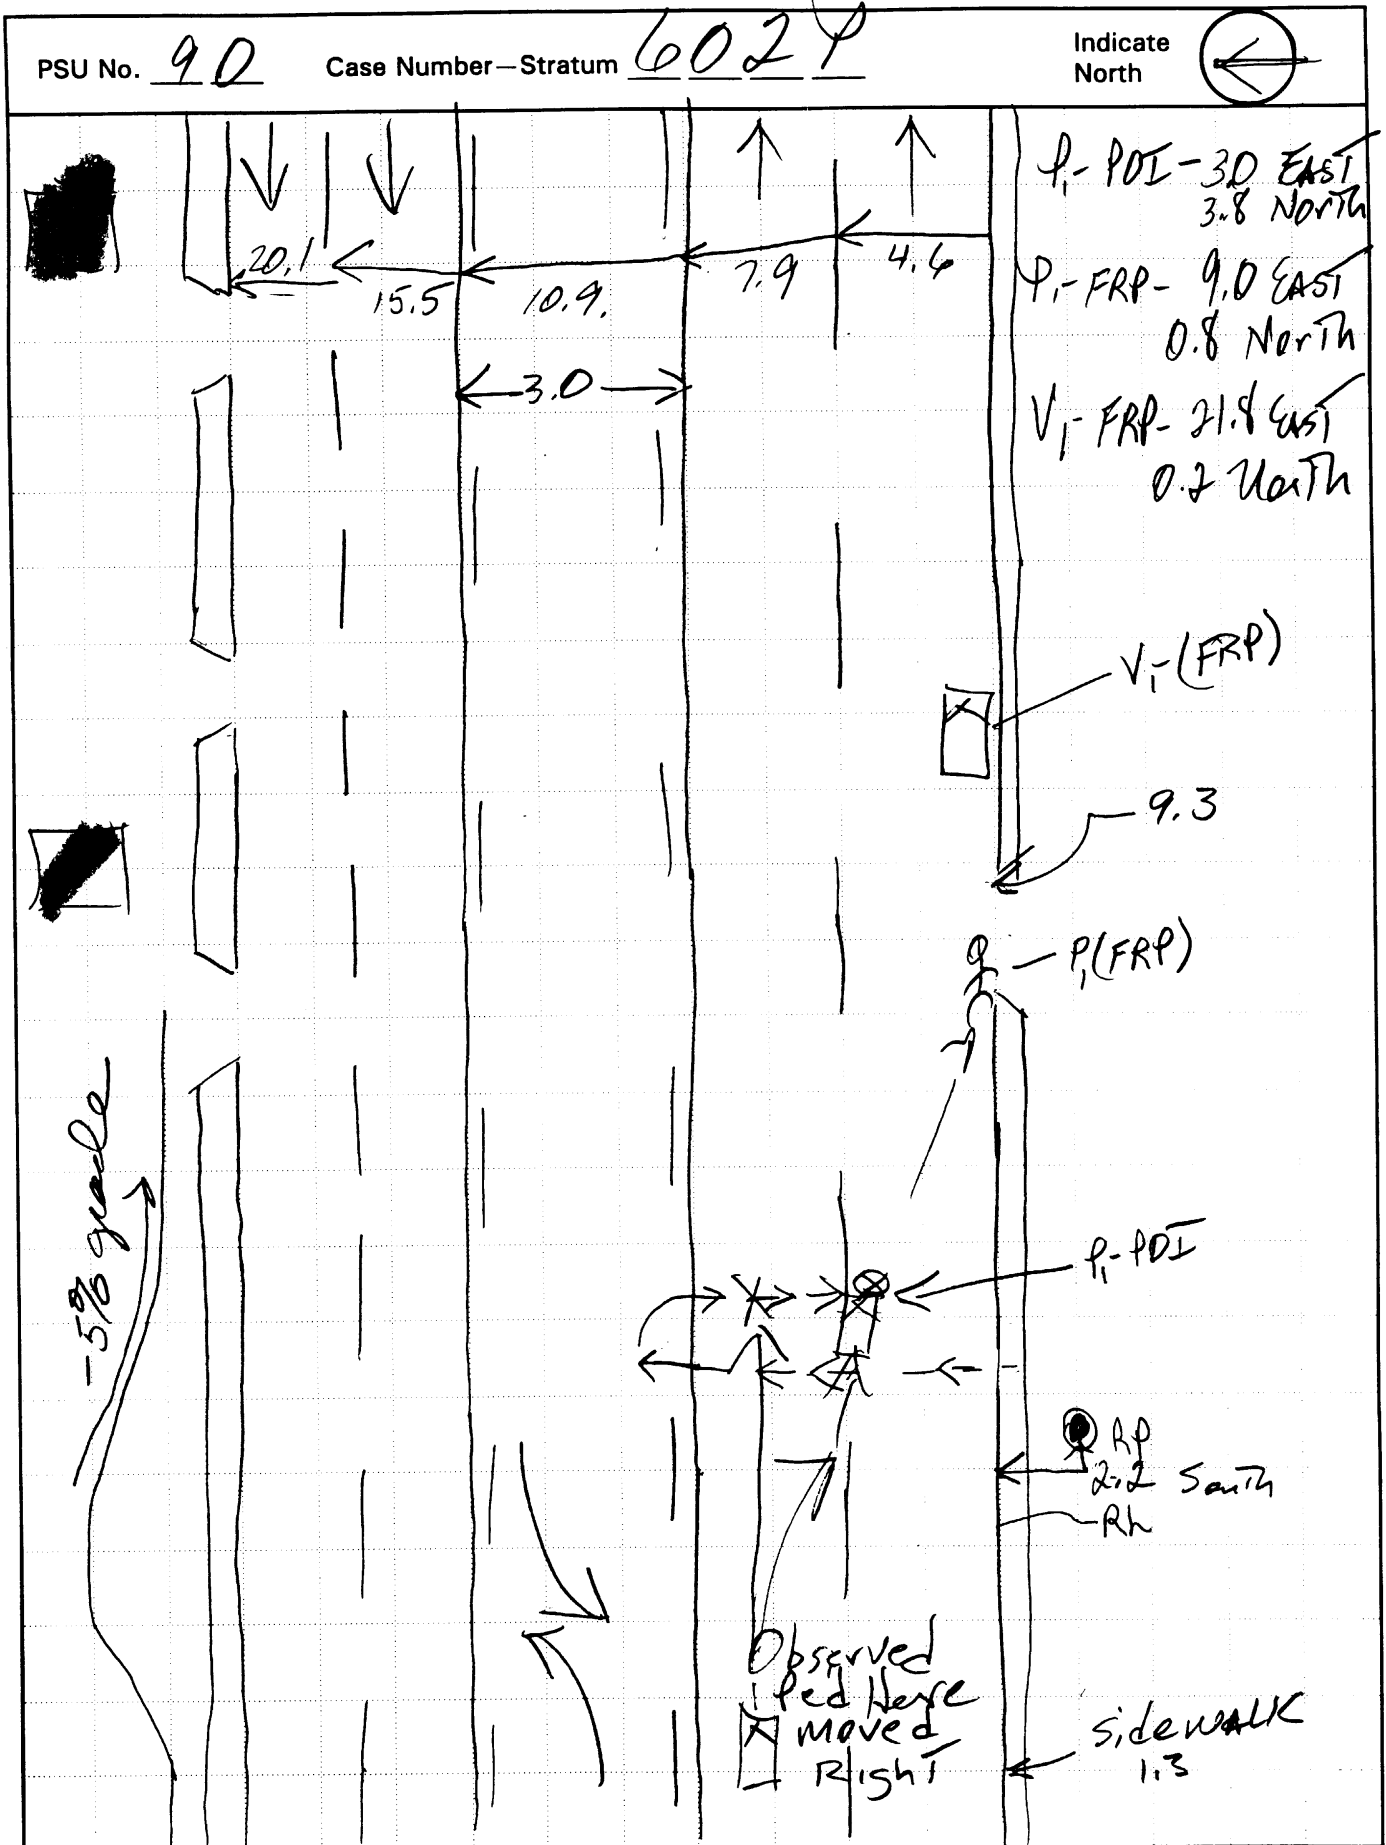 PSU No. 90 Case Number—Stratum 602P Indicate North
P1- POI - 3.0 EAST
3.8 North
P1- FRP - 9.0 EAST
0.8 North
V1- FRP - 21.8 EAST
0.2 North
20.1
15.5
10.9.
7.9
4.6
3.0
V1-(FRP)
9.3
P1(FRP)
-5% grade
P1-POI
RP
2.2 South
RL
Observed
Ped Here
moved
Right
sidewalk
1.3